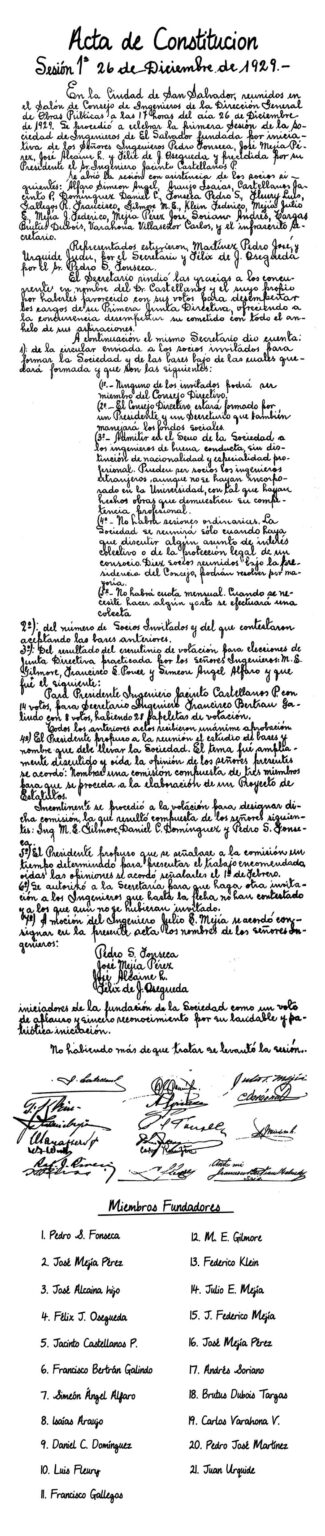 Acta de Constitucion
Sesión 1ª 26 de Diciembre de 1929.-
En la Ciudad de San Salvador, reunidos en
el Salón de Consejo de Ingenieros de la Dirección General
de Obras Públicas a las 17 horas del día 26 de Diciembre
de 1929. Se procedió a celebrar la primera Sesión de la So-
ciedad de Ingenieros de El Salvador fundada por inicia-
tiva de los Señores Ingenieros Pedro Fonseca, José Mejía Pé-
rez, José Alcaine h. y Félix de J. Osegueda y presidida por su
Presidente el Sr. Ingeniero Jacinto Castellanos P.
Se abrió la sesión con asistencia de los socios si-
guientes: Alfaro Simeon Angel, Araujo Isaias, Castellanos Ja-
cinto P. Dominguez Daniel C, Fonseca Pedro S, Fleury Luis,
Gallegos R. Francisco, Gilmore M. E., Klein Federico, Mejía Julio
E, Mejía J. Federico, Mejía Pérez José, Soriano Andrés, Vargas
Brutus Dubois, Varahona Villaseñor Carlos, y el infrascrito se-
cretario.
Representados estuvieron, Martínez Pedro José, y
Urquide Juan, por el Secretario y Félix de J. Osegueda
por el Sr. Pedro S. Fonseca.
El Secretario rindió las gracias a los concu-
rrente en nombre del Sr. Castellanos y el suyo propio
por haberles favorecido con sus votos para desempeñar
los cargos de su Primera Junta Directiva, ofreciendo a
la concurrencia desempeñar su cometido con todo el an-
helo de sus aspiraciones.
A continuación el mismo Secretario dio cuenta:
1): de la circular enviada a los socios invitados para
formar la Sociedad y de las bases bajo de las cuales que-
dará formada y que son las siguientes:
(1ª.- Ninguno de los invitados podrá ser
miembro del Consejo Directivo.
(2ª.- El Consejo Directivo estará formado por
un Presidente y un Secretario que también
manejará los fondos sociales.
(3ª.- Admitir en el Seno de la Sociedad a
los ingenieros de buena conducta, sin dis-
tinción de nacionalidad y especialidad pro-
fesional. Pueden ser socios los ingenieros
extranjeros, aunque no se hayan incorpo-
rado en la Universidad, con tal que hayan
hechos obras que demuestren su compe-
tencia profesional.
(4ª.- No habrá sesiones ordinarias. La
Sociedad se reunirá sólo cuando haya
que discutir algún asunto de interés
colectivo o de la protección legal de un
consocio. Diez socios reunidos bajo la pre-
sidencia del Consejo, podrían resolver por ma-
yoría.
(5ª.- No habrá cuota mensual. Cuando se ne-
cesite hacer algún gasto se efectuará una
colecta
2ª): del número de Socios Invitados y del que contestaron
aceptando las bases anteriores.
3ª): Del resultado del escrutinio de votación para elecciones de
Junta Directiva practicada por los señores Ingenieros: M. E.
Gilmore, Francisco E. Ponce y Simeon Angel Alfaro y que
fué el siguiente:
Para Presidente Ingeniero Jacinto Castellanos P con
14 votos, para Secretario Ingeniero Francisco Bertrán Ga-
lindo con 8 votos, habiendo 28 papeletas de votación.
Todos los anteriores actos recibieron unánime aprobación
4ª) El Presidente propuso a la reunión el estudio de bases y
nombre que debe llevar la Sociedad. El tema fué amplia-
mente discutido y oída la opinión de los señores presentes
se acordó: Nombrar una comisión compuesta de tres miembros
para que se proceda a la elaboración de un Proyecto de
Estatutos.
Incontinente se procedió a la votación para designar di-
cha comisión, la que resultó compuesta de los señores siguien-
tes: Ing M. E. Gilmore, Daniel C. Dominguez y Pedro S. Fonse-
ca.
5ª) El Presidente propuso que se señalase a la comisión un
tiempo determinado para presentar el trabajo encomendado,
oídas las opiniones se acordó señalarles el 1º de Febrero.
6ª) Se autorizó a la Secretaría para que haga otra invita-
ción a los Ingenieros que hasta la fecha no han contestado
o a los que aun no se hubieran invitado.
7ª) A moción del Ingeniero Julio E. Mejía se acordó con-
signar en la presente acta los nombres de los señores In-
genieros:
Pedro S. Fonseca
José Mejía Pérez
José Alcaine h.
Félix de J. Osegueda
iniciadores de la fundación de la Sociedad como un voto
de aplauso y sincero reconocimiento por su laudable y pa-
triótica iniciación.
No habiendo más de que tratar se levantó la sesión.
Julio E. Mejía
Ante mi
Miembros Fundadores
1. Pedro S. Fonseca
2. José Mejía Pérez
3. José Alcaina hijo
4. Félix J. Osegueda
5. Jacinto Castellanos P.
6. Francisco Bertrán Galindo
7. Simeón Ángel Alfaro
8. Isaías Araujo
9. Daniel C. Domínguez
10. Luis Fleury
11. Francisco Gallegos
12. M. E. Gilmore
13. Federico Klein
14. Julio E. Mejía
15. J. Federico Mejía
16. José Mejía Pérez
17. Andrés Soriano
18. Brutus Dubois Targas
19. Carlos Varahona V.
20. Pedro José Martínez
21. Juan Urquide